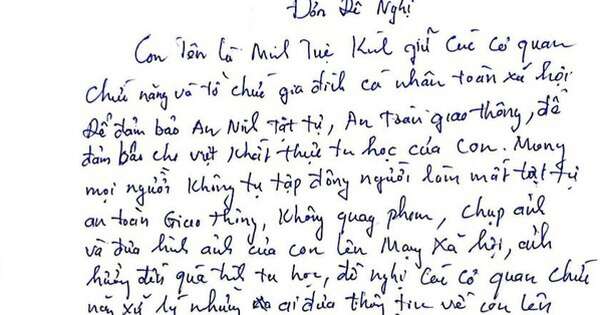 Đơn Đề Nghị
Con Tên là Minh Tuệ Kính gửi Các Cơ quan
Chức năng và tổ chức gia đình cá nhân toàn xã hội
Để đảm bảo An Ninh Tật Tự, An Toàn giao thông, để
đảm bảo cho việt Khất thực tu học của Con. Mong
mọi người Không tụ tập đông người làm mất tật tự
an toàn Giao thông, Không quay phom, Chụp ảnh
và đưa hình ảnh của con lên Mạng Xã hội, ảnh
hưởng đến quá trình tu học, đề nghị Các Cơ quan chức
năng xử lý những ai đưa thông tin về con lên